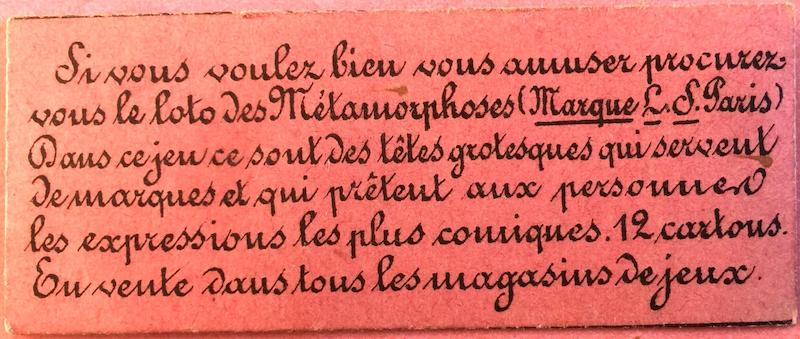 Si vous voulez bien vous amuser procurez-
vous le loto des Métamorphoses (Marque L. S. Paris)
Dans ce jeu ce sont des têtes grotesques qui servent
de marques et qui prêtent aux personnes
les expressions les plus comiques. 12 cartons.
En vente dans tous les magasins de jeux.